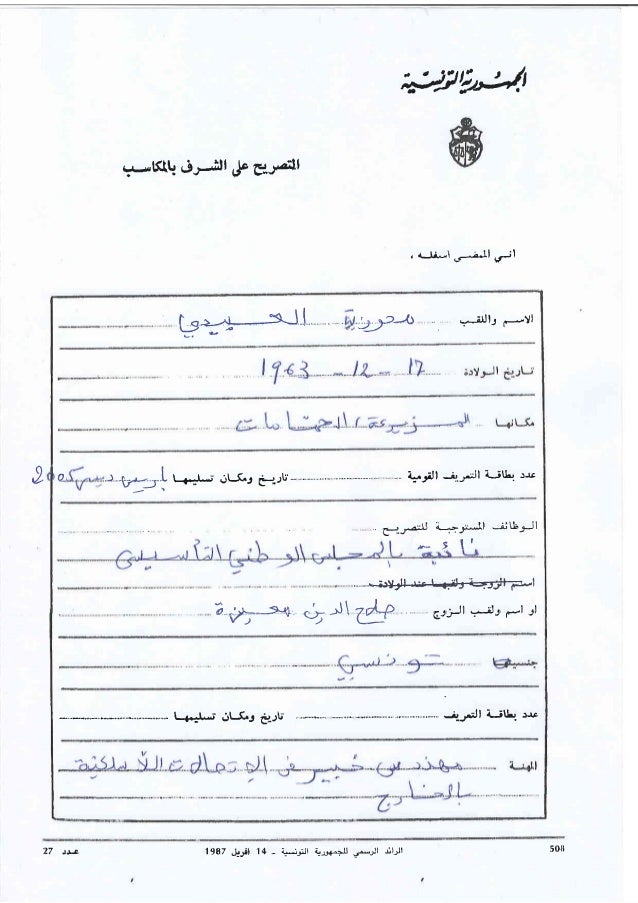 الجمهورية التونسية
التصريح على الشرف بالمكاسب
انـي الممضـى اسفلـه ،
الاسـم واللقـب محرزية العبيدي
تـاريخ الـولادة 17 - 12 - 1963
مكـانهـا المزيرعة، الحمامات
عدد بطاقة التعريف القومية تاريخ ومكان تسليمها باريس ديسمبر
الـوظائف المستوجبـة للتصريـح
نائبة بالمجلس الوطني التأسيسي
اسـم الزوجـة ولقبهـا عند الولادة
او اسم ولقـب الـزوج صلاح الدين معيزة
جنسيتها تونسي
عدد بطاقـة التعريـف تاريخ ومكـان تسليمهـا
المهنـة مهندس خبير في الإتصالات اللاسلكية
بالخارج
508 الرائد الرسمي للجمهورية التونسية ـ 14 افريل 1987 عـدد 27